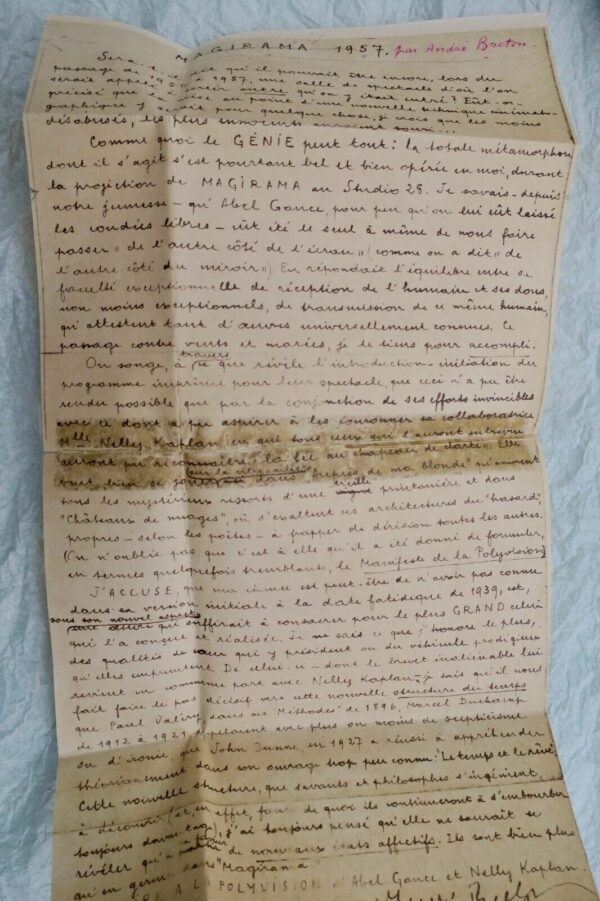 MAGIRAMA 1957. par André Breton.
Sera-t-il dit qu'il pourrait être encore, lors du
passage de 1956 à 1957, une salle de spectacle d'où l'on
serait appelé à sortir autre qu'on y était entré? Eût-on
précisé que la mise au point d'une nouvelle technique cinémato-
graphique y serait pour quelque chose, je crois que les moins
désabusés, les plus innocents auraient souri...
Comme quoi le GÉNIE peut tout: la totale métamorphose
dont il s'agit s'est pourtant bel et bien opérée en moi, durant
la projection de MAGIRAMA au Studio 28. Je savais - depuis
notre jeunesse - qu'Abel Gance, pour peu qu'on lui eût laissé
les coudées libres - eût été le seul à même de nous faire
passer " de l'autre côté de l'écran" (comme on a dit " de
l'autre côté du miroir"). En répondait l'équilibre entre sa
faculté exceptionnelle de réception de l'humain et ses dons,
non moins exceptionnels, de transmission de ce même humain,
qu'attestent tant d'œuvres universellement connues. Ce
passage contre vents et marées, je le tiens pour accompli.
On songe, à travers ce que révèle l'introduction-initiation du
programme imprimé pour leur spectacle, que ceci n'a pu être
rendu possible que par la conjonction de ses efforts invincibles
avec ce dont a pu aspirer à les couronner sa collaboratrice
Mlle Nelly Kaplan en qui tous ceux qui l'auront entrevue
auront pu reconnaître " la fée au chapeau de clarté". Elle
dans "Auprès de ma blonde" qu'animent
tous les mystérieux ressorts d'une treille printanière et dans
"Châteaux de nuages", où s'exaltent ces architectures du "hasard,
propres - selon les poètes - à frapper de dérision toutes les autres.
(On n'oublie pas que c'est à elle qu'il a été donné de formuler,
en termes quelquefois tremblants, le Manifeste de la Polyvision)
J'ACCUSE, que ma chance est peut-être de n'avoir pas connu
dans sa version initiale à la date fatidique de 1939, est,
sous son nouvel aspect
une œuvre qui suffirait à consacrer pour le plus GRAND celui
qui l'a conçue et réalisée. Je ne sais ce que j'honore le plus,
des qualités de cœur qui y président ou du véhicule prodigieux
qu'elles empruntent. De celui-ci - dont le brevet inaliénable lui
revient en commune part avec Nelly Kaplan - je sais qu'il nous
fait faire le pas décisif vers cette nouvelle structure du temps
que Paul Valéry, dans ses "Méthodes" de 1896, Marcel Duchamp
de 1912 à 1921, appelaient avec plus ou moins de scepticisme
ou d'ironie, que John Dunne en 1927 a réussi à appréhender
théoriquement dans son ouvrage trop peu connu: "Le temps et le rêve".
Cette nouvelle structure, que savants et philosophes s'ingénient
à découvrir (et, en effet, faute de quoi ils continueront à s'embourber
toujours davantage), j'ai toujours pensé qu'elle ne saurait se
révéler qu'à partir de nouveaux états affectifs. Ils sont bien plus
qu'en germe dans "Magirama"
À LA POLYVISION d'Abel Gance et Nelly Kaplan.
André Breton